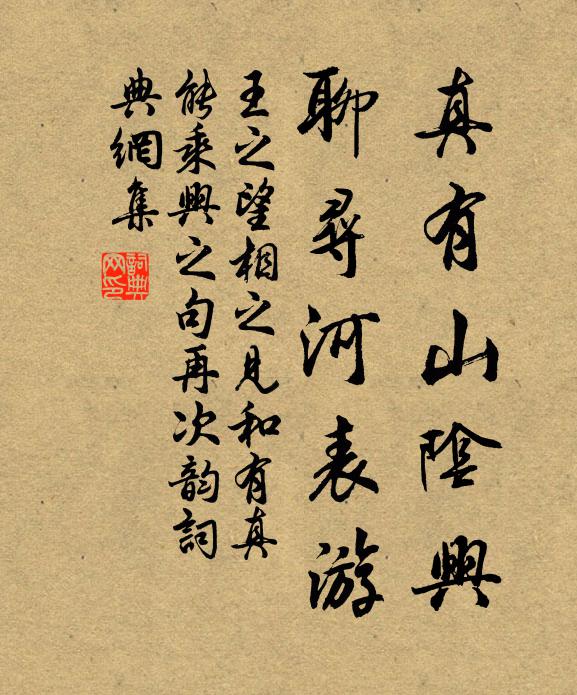 真有山陰興
聊尋河表游
王之望相之見和有真
能乘興之句再次韵詞
典網集
詞典
网印